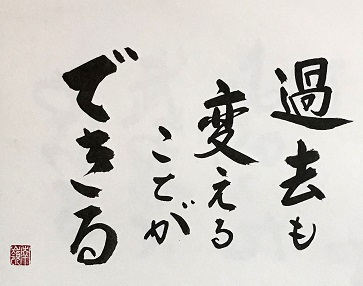 過去も
変える
ことが
できる